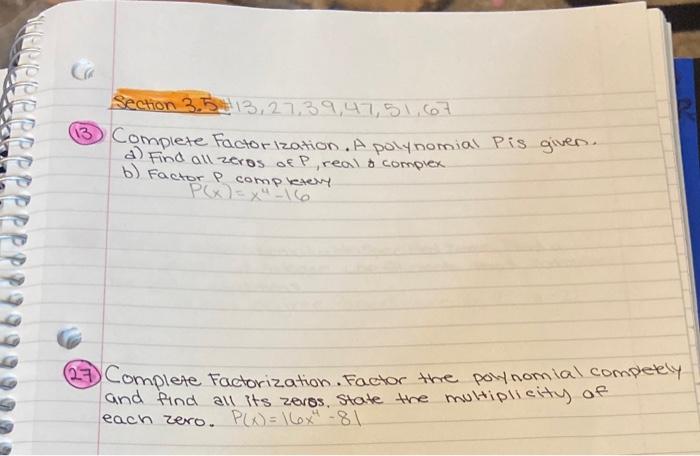 Section 3.5 #13,27,39,47,51,67
13 Complete Factorization. A polynomial P is given.
a) Find all zeros of P, real & complex
b) Factor P completely
P(x)=x⁴-16
27 Complete Factorization. Factor the polynomial completely
and find all its zeros. State the multiplicity of
each zero. P(x)=16x⁴-81